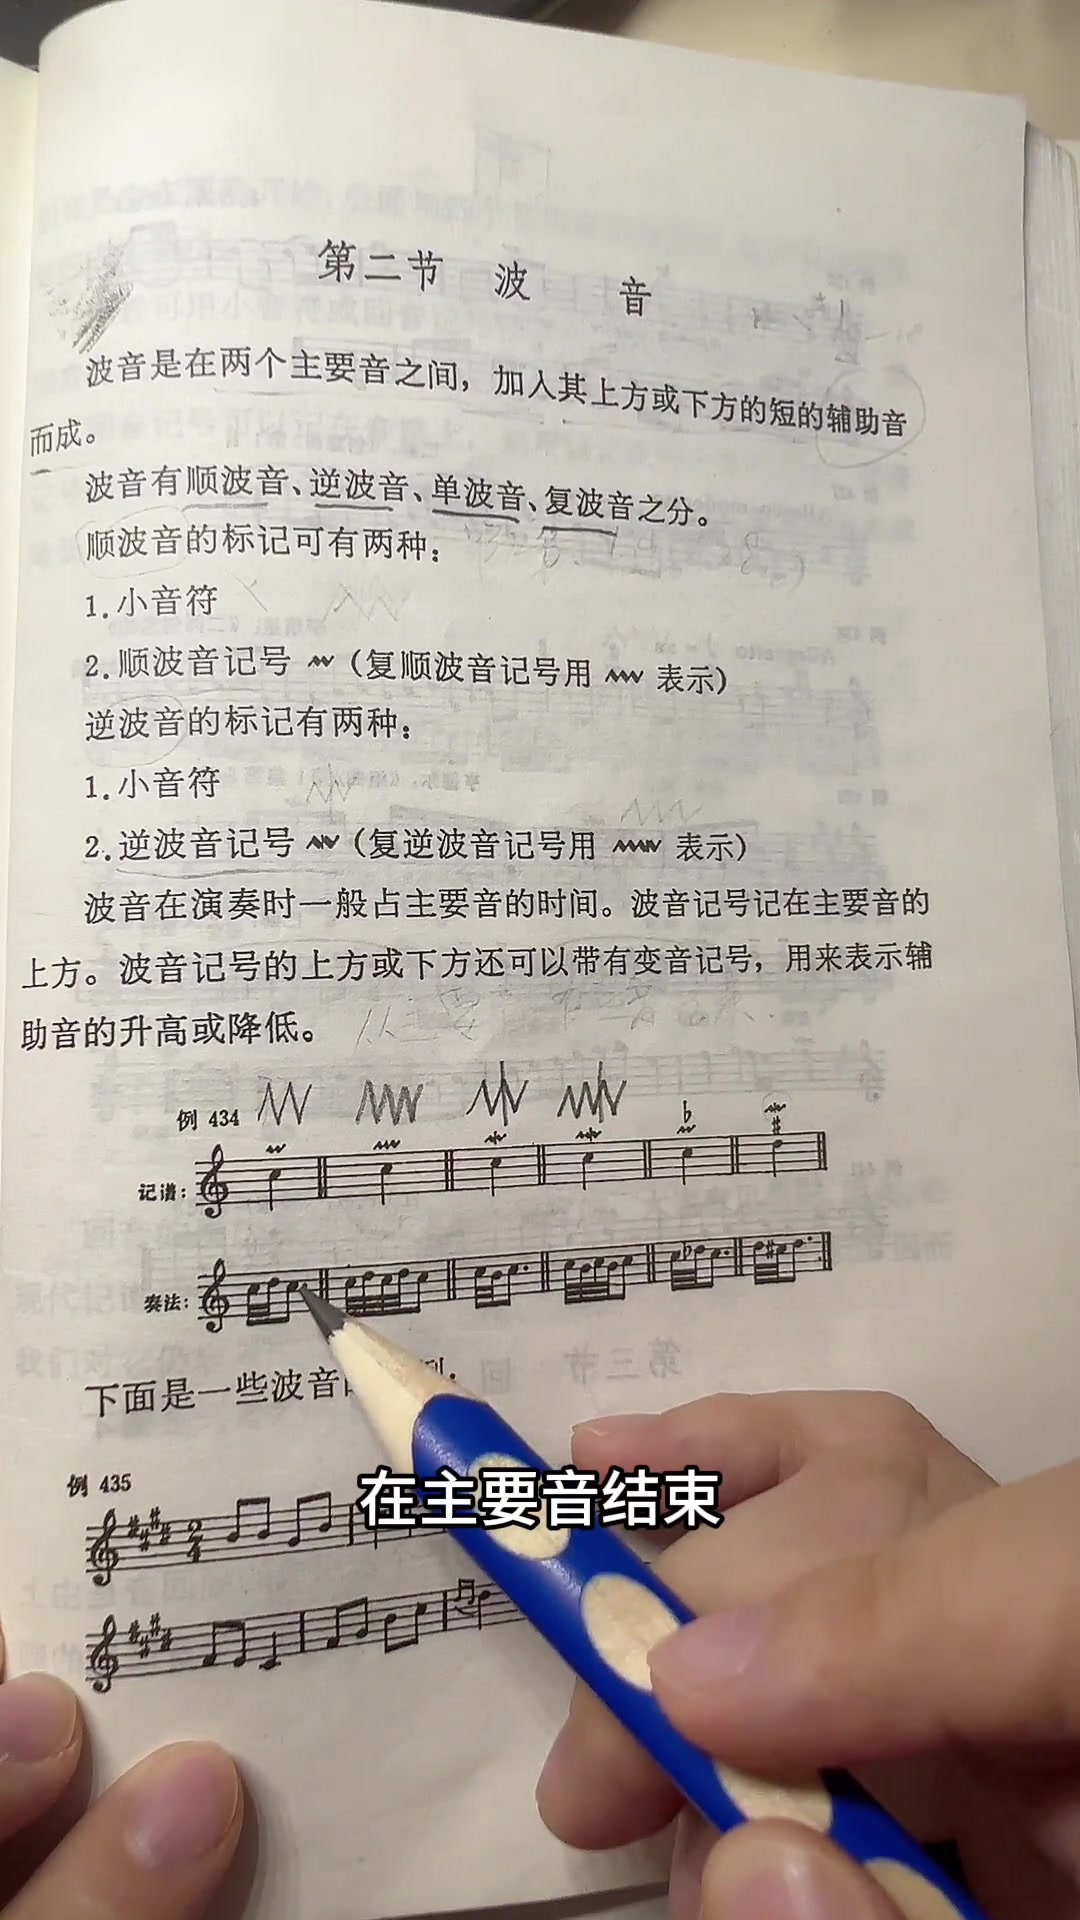 第二节 波 音
波音是在两个主要音之间，加入其上方或下方的短的辅助音
而成。
波音有顺波音、逆波音、单波音、复波音之分。
顺波音的标记可有两种：
1.小音符
2.顺波音记号 （复顺波音记号用 表示）
逆波音的标记有两种：
1.小音符
2.逆波音记号 （复逆波音记号用 表示）
波音在演奏时一般占主要音的时间。波音记号记在主要音的
上方。波音记号的上方或下方还可以带有变音记号，用来表示辅
助音的升高或降低。
例 434
记谱：
奏法：
下面是一些波音
例 435
在主要音结束